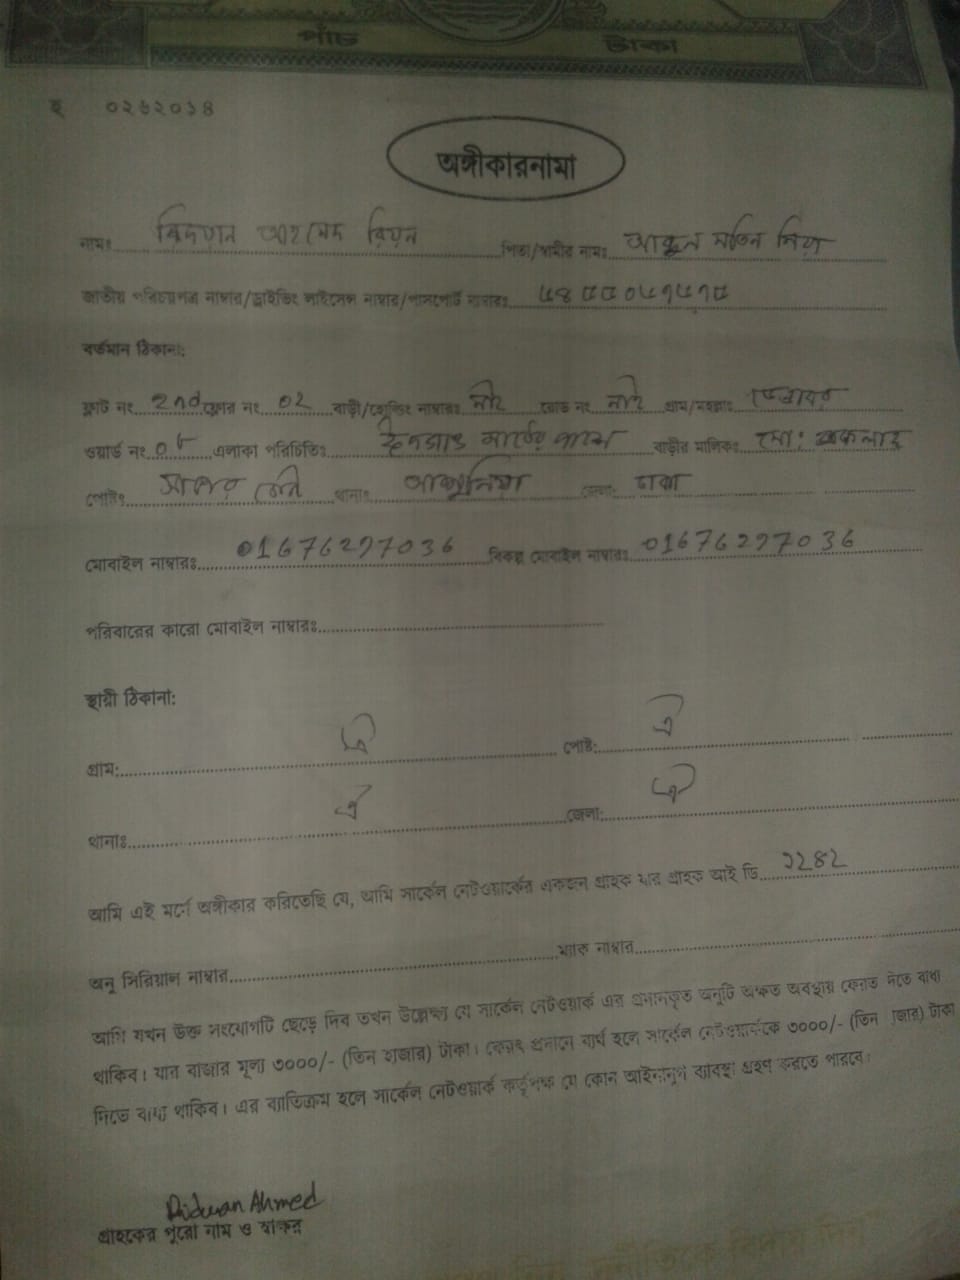 পাঁচ টাকা
হ ০২৬২০১৪
অঙ্গীকারনামা
নামঃ রিদওয়ান আহমেদ রিয়ন পিতা/স্বামীর নামঃ আব্দুল মতিন মিয়া
জাতীয় পরিচয়পত্র নাম্বার/ড্রাইভিং লাইসেন্স নাম্বার/পাসপোর্ট নাম্বারঃ
বর্তমান ঠিকানা:
ফ্লাট নং 2nd ফ্লোর নং 02 বাড়ী/হোল্ডিং নাম্বারঃ নাই রোড নং নাই গ্রাম/মহল্লাঃ
ওয়ার্ড নং এলাকা পরিচিতিঃ বাড়ীর মালিকঃ মো:
পোষ্টঃ থানাঃ জেলা: ঢাকা
মোবাইল নাম্বারঃ 01676297036 বিকল্প মোবাইল নাম্বারঃ 01676297036
পরিবারের কারো মোবাইল নাম্বারঃ
স্থায়ী ঠিকানা:
গ্রাম: ঐ পোষ্ট: ঐ
থানাঃ ঐ জেলা: ঐ
আমি এই মর্মে অঙ্গীকার করিতেছি যে, আমি সার্কেল নেটওয়ার্কের একজন গ্রাহক যার গ্রাহক আই ডি ১২৪২
অনু সিরিয়াল নাম্বার ম্যাক নাম্বার
আমি যখন উক্ত সংযোগটি ছেড়ে দিব তখন উল্লেক্ষ্য যে সার্কেল নেটওয়ার্ক এর প্রদানকৃত অনুটি অক্ষত অবস্থায় ফেরত দিতে বাধ্য
থাকিব। যার বাজার মূল্য ৩০০০/- (তিন হাজার) টাকা। ফেরৎ প্রদানে ব্যর্থ হলে সার্কেল নেটওয়ার্ককে ৩০০০/- (তিন হাজার) টাকা
দিতে বাধ্য থাকিব। এর ব্যাতিক্রম হলে সার্কেল নেটওয়ার্ক কর্তৃপক্ষ যে কোন আইনানুগ ব্যাবস্থা গ্রহণ করতে পারবে।
Ridwan Ahmed
গ্রাহকের পুরো নাম ও স্বাক্ষর